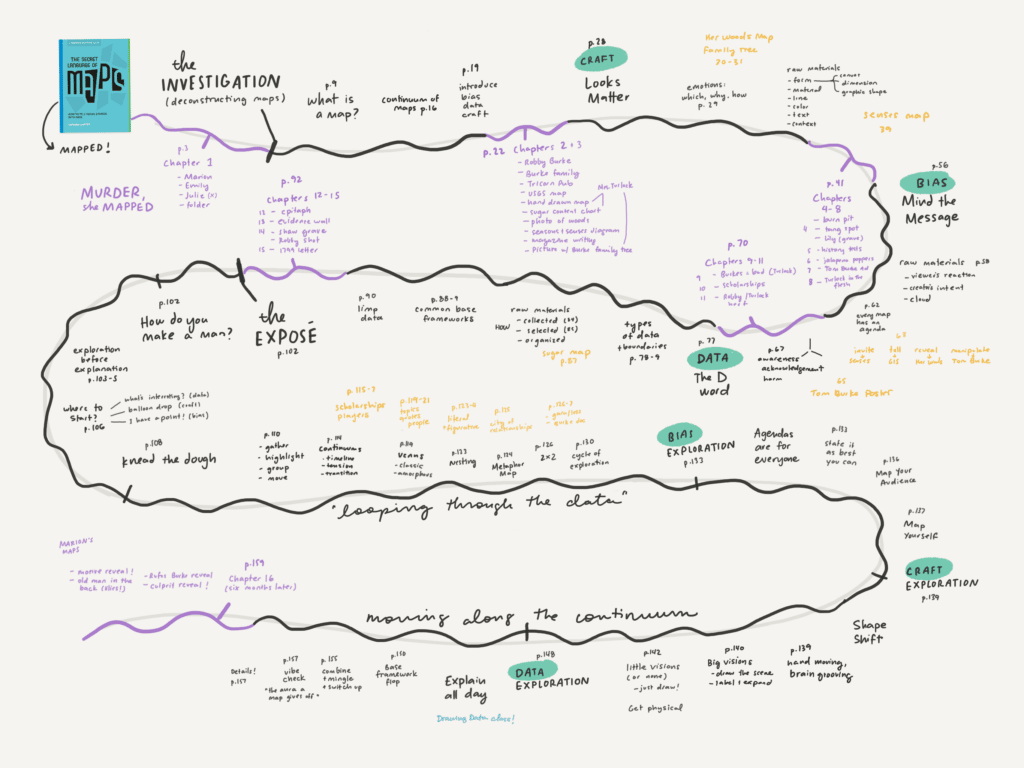 THE SECRET
LANGUAGE OF
MAPS
MAPPED!
the
INVESTIGATION
(deconstructing maps)
p.9
what is
a map?
continuum of
maps p.16
p.19
introduce
bias
data
craft
p.28
CRAFT
Looks
Matter
Her Woods Map
Family Tree
30-31
emotions:
which, why, how
p.29
raw materials
- form
- material
- line
- color
- text
- context
canvas
dimension
graphic shape
senses map
39
MURDER,
she MAPPED
p.3
Chapter 1
- Marion
- Emily
- Julie (x)
- folder
p.22 Chapters 2+3
- Robby Burke
- Burke family
- Tricorn Pub
- USGS map
- hand drawn map
- sugar control chart
- photo of woods
- seasons + senses diagram
- magazine writing
- Picture w/ Burke family tree
Mr. Turlock
p.41
Chapters
4-8
- burn pit
4 - tang spot
- Lily (grave)
5 - history tests
6 - jalapeno poppers
7 - Tom Burke ad
8 - Turlock in the
flesh
p.56
BIAS
Mind the
Message
raw materials p.58
- viewer's reaction
- creator's intent
- cloud
p.62
every map
has an
agenda
65
invite
senses
tell
GIS
reveal
Her Woods
manipulate
Tom Burke
65
Tom Burke Poster
p.67
awareness
acknowledgement
harm
p.70
Chapters 9-11
9 - Burkes = lead (Turlock)
10 - scholarships
11 - Robby/Turlock
beef
p.77
DATA
The D
word
types
of data
+ boundaries
p.78-9
raw materials
HOW
- collected (84)
- selected (85)
- organized
sugar map
p.87
p.88-9
common base
frameworks
p.90
limp
data
p.92
Chapters 12-15
12 - epitaph
13 - evidence wall
14 - Shaw grave
- Robby shot
15 - 1799 letter
the
EXPOSÉ
p.102
p.102
How do you
make a map?
exploration
before
explanation
p.103-5
where to
start?
p.106
what's interesting? (data)
balloon drop (craft)
I have a point! (bias)
p.108
knead the dough
p.110
- gather
- highlight
- group
- move
p.115-7
scholarships
pingers
p.114
continuums
- timeline
- tension
- transition
p.119-21
topics
traits
people
p.119
VENNS
- classic
- amorphous
p.122-4
literal
+ figurative
p.123
Nesting
p.125
city of
relationships
p.124
Metaphor
Map
p.126
2x2
p.130
cycle of
exploration
BIAS
EXPLORATION
p.133
Agendas
are for
everyone
p.133
State it
as best
you can
p.136
Map Your
Audience
"looping through the data"
p.137
Map
Yourself
CRAFT
EXPLORATION
p.139
Shape
Shift
p.139
hand moving,
brain grooving
p.140
Big visions
- draw the scene
- label + expand
p.142
little visions
(or none)
- just draw!
Get physical
p.148
DATA
EXPLORATION
Explain
all day
Drawing Data class!
p.150
Base
framework
flop
p.155
combine
+ mingle
+ switch up
p.157
vibe
check
"the aura a
map gives off"
Details!
p.157
moving along the continuum
p.159
Chapter 16
(six months later)
- Rufus Burke reveal
- culprit reveal!
MARION'S
MAPS
- old man in the